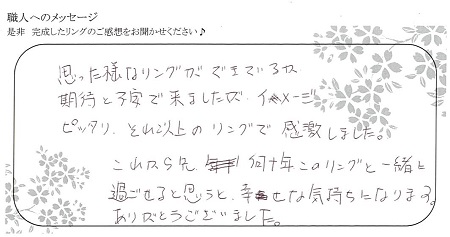 職人へのメッセージ
是非 完成したリングのご感想をお聞かせください♪
思った様なリングができているか
期待と不安で来ましたが、イメージ
ピッタリ、それ以上のリングで感激しました。
これから先、何十年このリングと一緒に
過ごせると思うと、幸せな気持ちになります。
ありがとうございました。